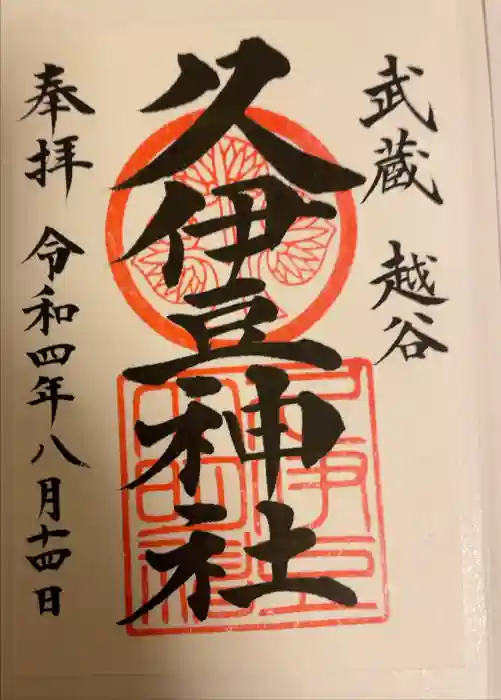 武蔵 越谷
久伊豆神社
奉拝 令和四年八月十四日